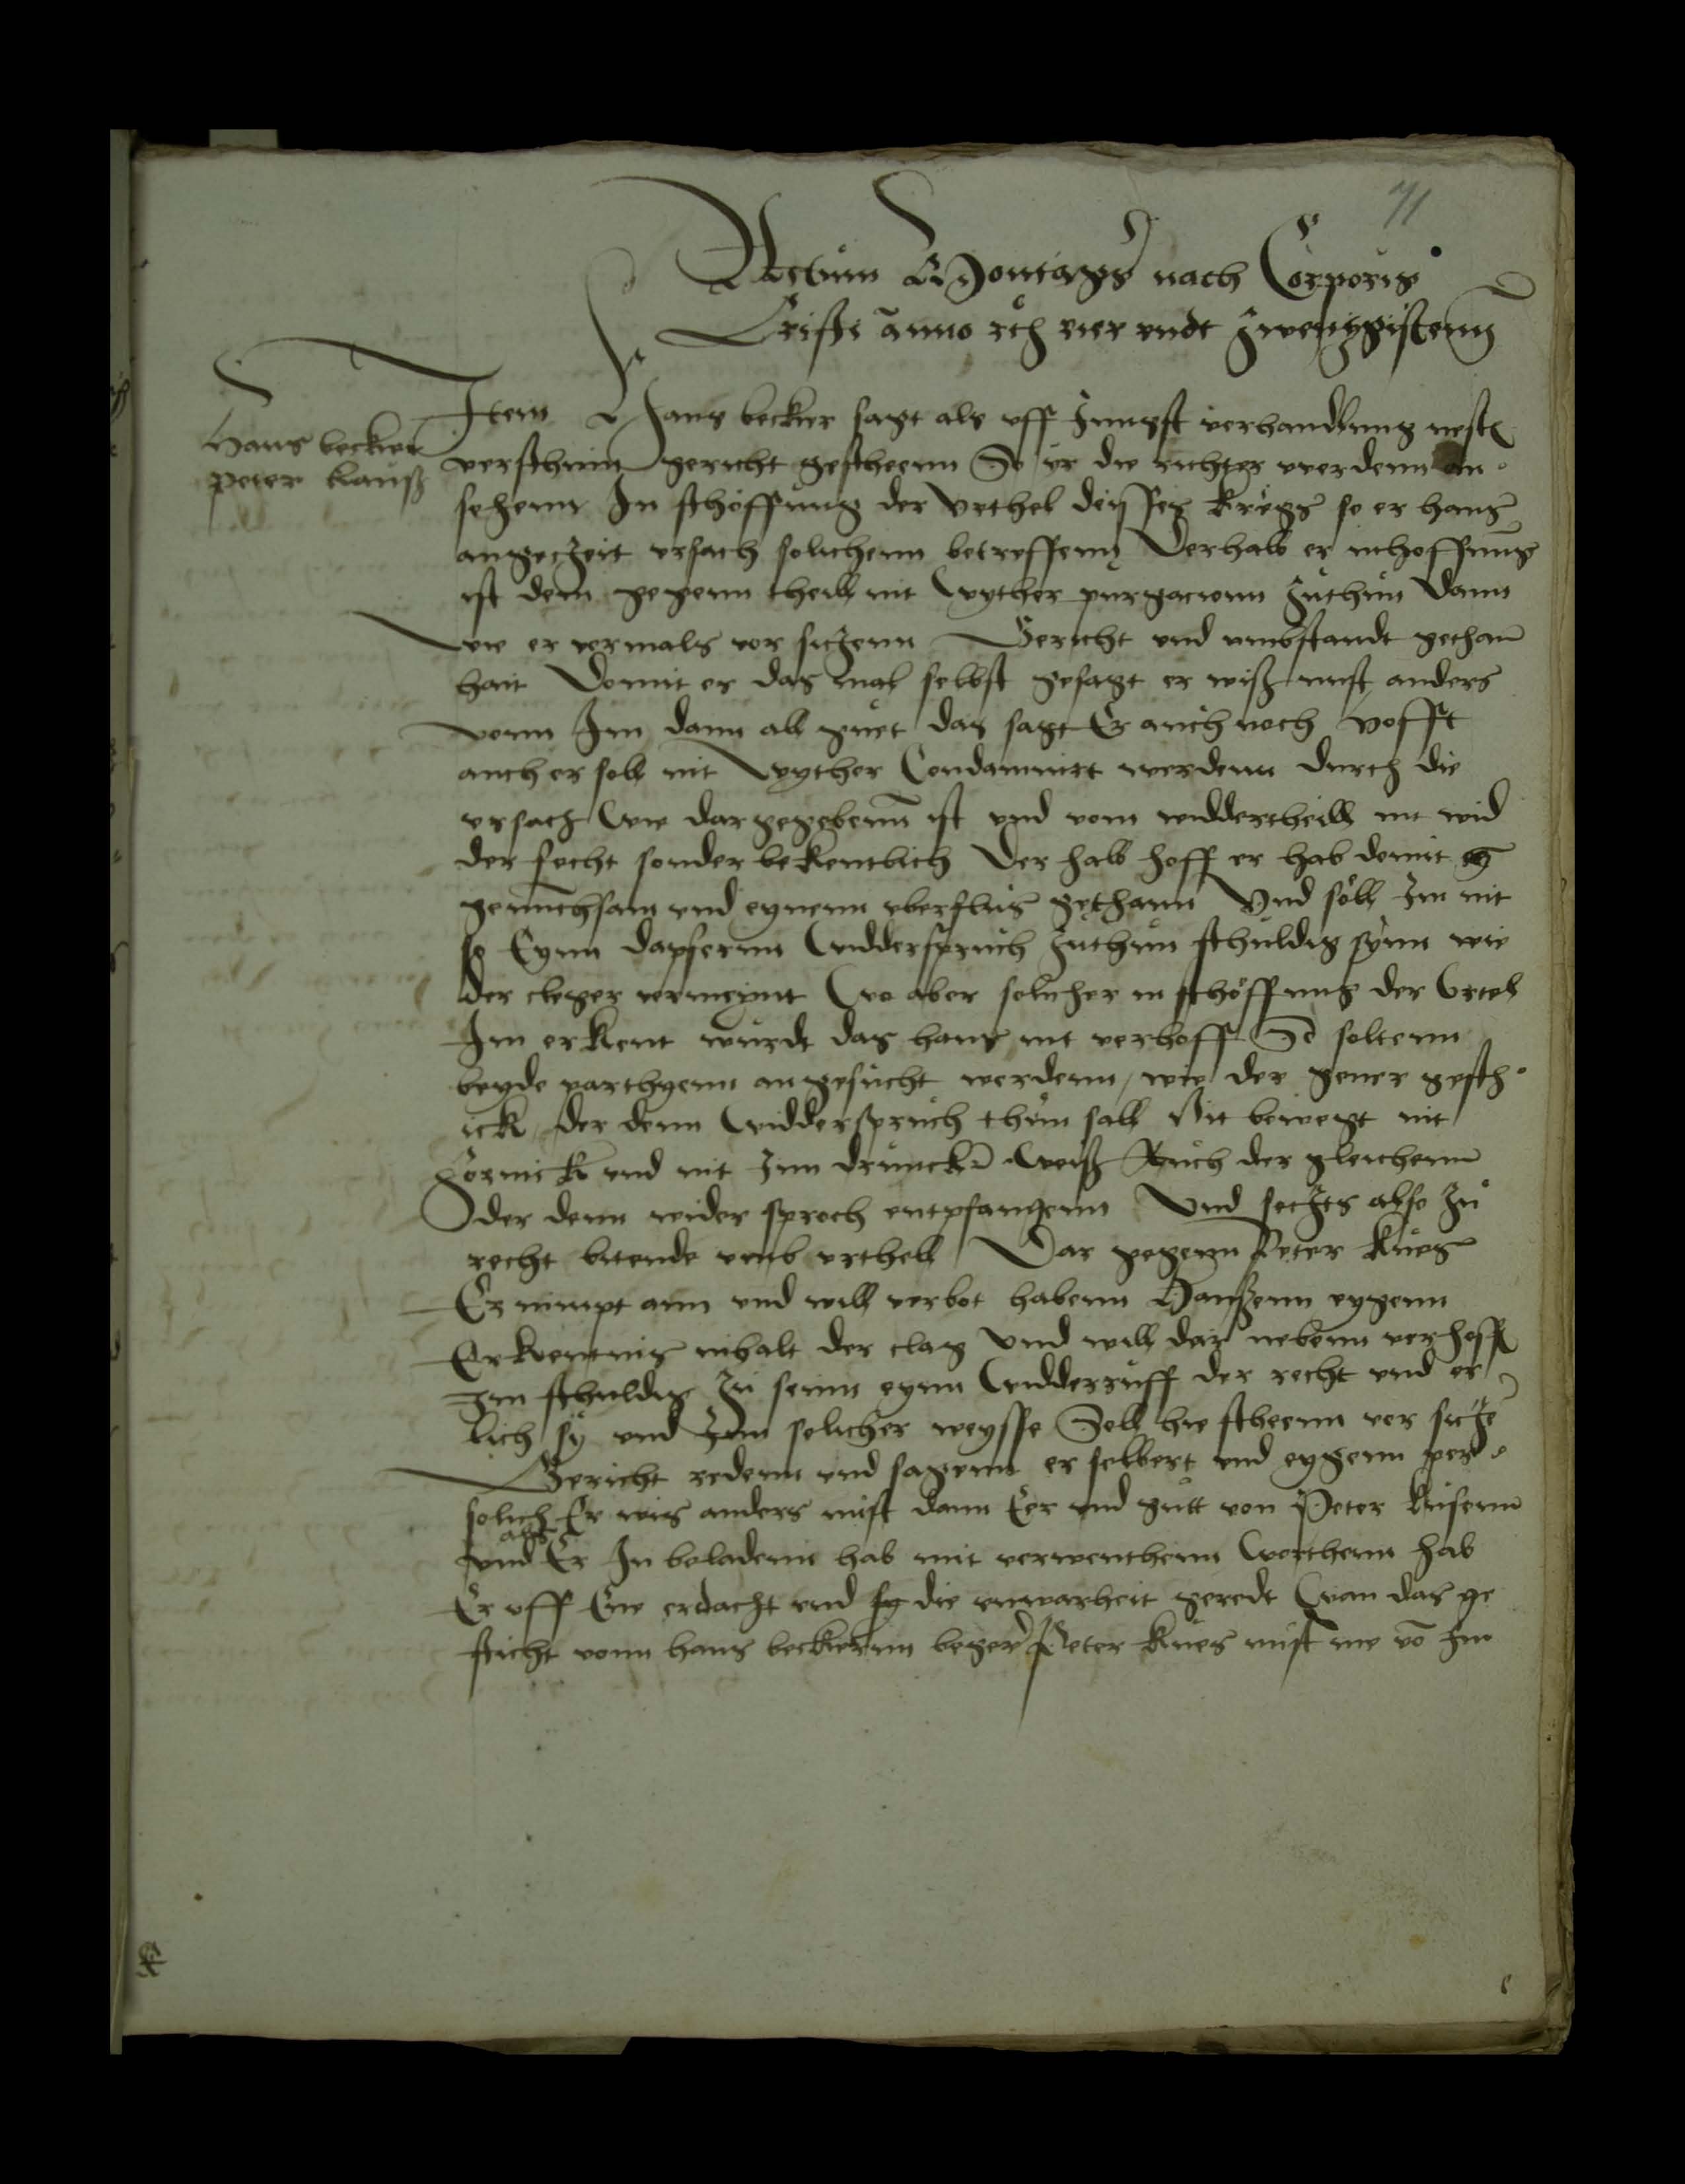 71
Actum Montags nach Corporis
Cristi anno xcs vier undt zwenzgistenn
Hans becker
peter kauß
Item Hans becker sagt als uff Jungst verhandlung
gericht gescheenn So ir die richter werdenn an
sehenn In schöffung der Urthel kriegs so er hans
angezceit ursach solichenn betreffenn Derhalb er inhoffnung
ist dem gegenn theill nit wyther purgacionn zuthun dann
wie er vormals vor sitzenn Gericht und umbstandt gethan
hait Domit er das mal selbst gesagt er wiß nust anders
vonn Im dann all guet das sagt Er auch noch hofft
auch er soll nit wyther Condamnirt werdenn durch die
ursach wie dargegebenn ist und vom widdertheill nit wid
der fecht sonder bekentlich Der halb hoff er hab domit
genuchsam und eynenn uberflus gethann Und soll Im nit
so Eynn dapfernn widderspruch zuthun schuldig synn wie
der cleger vermeynt wo aber solicher in schöffung der Urtel
Im erkent wurdt das hans nit verhoff So soltenn
beyde parthyenn angesucht werdenn / wie der gener gesch
ick der denn widderspruch thun sall Nit bewegt nit
zornick und nit Inn drunckē weiß Auch der gleichenn
Oder denn wider sproch entpfangenn Und setzts also zu
recht bitende umb urthell Dar gegenn Peter
Er nimpt ann und will verbot habenn Hanßenn eygenn
Erkentnis inhalt der clag Und will dar nebenn verhoff
Im schuldig zu seinn eynn widderruff der recht und er
lich sy und Inn solicher weysse Soll hie scheenn vor sitzē
Gericht redenn und sagenn er selbert und eygenn per
solich Er wis anders nust dann Eer und gutt von Peter
und als Er In beladenn hab mit verwenthenn worthenn hab
Er uff Ene erdacht und sy die unwarheit geredt wan das ge
schicht vonn hans beckernn beger Peter nust me vō Im